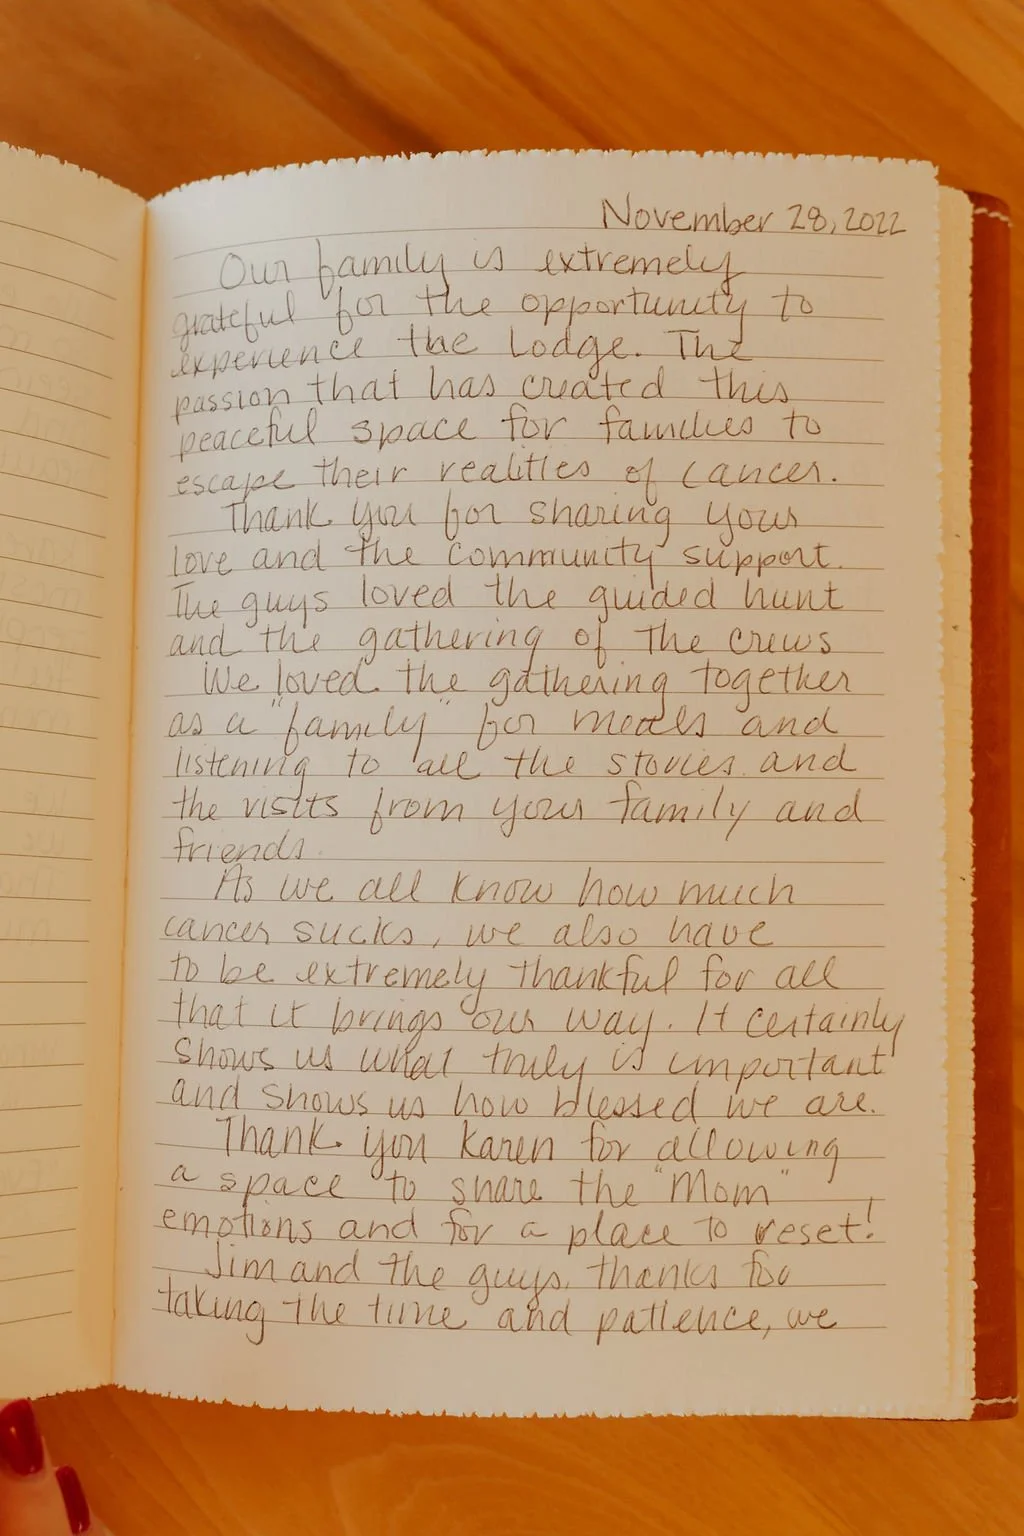 November 28, 2022
Our family is extremely
grateful for the opportunity to
experience the Lodge. The
passion that has created this
peaceful space for families to
escape their realities of cancer.
Thank you for sharing your
love and the community support.
The guys loved the guided hunt
and the gathering of the crews
We loved the gathering together
as a "family" for meals and
listening to all the stories and
the visits from your family and
friends.
As we all know how much
cancer sucks, we also have
to be extremely thankful for all
that it brings our way. It certainly
shows us what truly is important
and shows us how blessed we are.
Thank you Karen for allowing
a space to share the "Mom"
emotions and for a place to reset!
Jim and the guys, thanks for
taking the time and patience, we